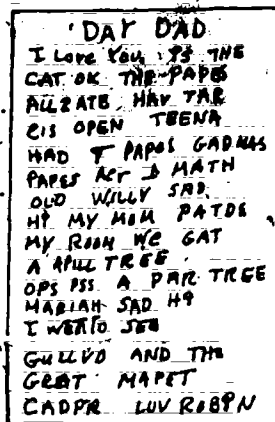 DAY DAD
I Love You, IS THE
CAT OK THE PAPES
ALLRATE HAV TAR
CIS OPEN TEENA
HAD T PAPOS GADMAS
PAPES ACT MATH
OLD WILLY SAD
HI MY MOM PATDE
MY ROOM WE GAT
A APULL TREE
OPS PSS A PAR TREE
MARIAH SAD HI
I WERTO SEA
GULLVD AND THE
GREAT MAPET
CADPR LUV ROBPN